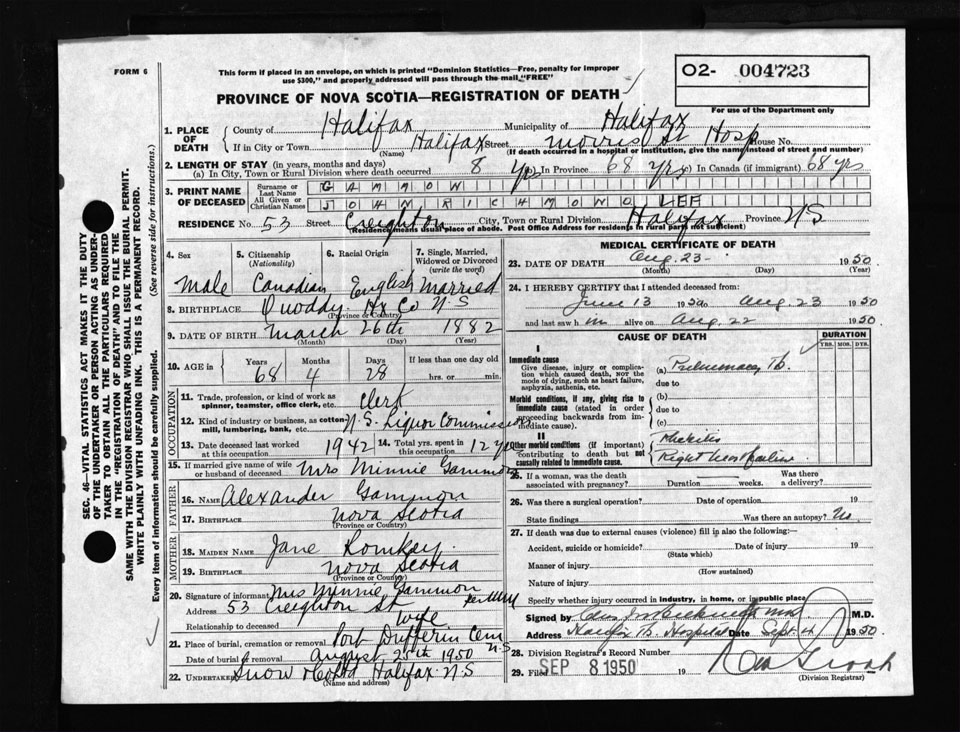 FORM 6
This form if placed in an envelope, on which is printed "Dominion Statistics—Free, penalty for improper
use $300," and properly addressed will pass through the mail "FREE"
O2- 004723
For use of the Department only
PROVINCE OF NOVA SCOTIA—REGISTRATION OF DEATH
SEC. 46—VITAL STATISTICS ACT MAKES IT THE DUTY
OF THE UNDERTAKER OR PERSON ACTING AS UNDER-
TAKER TO OBTAIN ALL THE PARTICULARS REQUIRED
IN THE "REGISTRATION OF DEATH" AND TO FILE THE
SAME WITH THE DIVISION REGISTRAR WHO SHALL ISSUE THE BURIAL PERMIT.
WRITE PLAINLY WITH UNFADING INK. THIS IS A PERMANENT RECORD.
Every item of information should be carefully supplied. (See reverse side for instructions.)
1. PLACE OF DEATH County of Halifax Municipality of Halifax
If in City or Town Halifax Street Morris St Hosp House No.
(Name) (If death occurred in a hospital or institution, give the name instead of street and number)
2. LENGTH OF STAY (in years, months and days)
(a) In City, Town or Rural Division where death occurred 8 yrs (b) In Province 68 yrs (c) In Canada (if immigrant) 68 yrs
3. PRINT NAME OF DECEASED Surname or Last Name GAMMON
All Given or Christian Names JOHN RICHMOND
RESIDENCE No. 53 Street Creighton City, Town or Rural Division Halifax Province N S
(Residence means usual place of abode. Post Office Address for residents in rural parts not sufficient)
4. Sex 5. Citizenship (Nationality) 6. Racial Origin 7. Single, Married, Widowed or Divorced (write the word)
Male Canadian English Married
8. BIRTHPLACE Quoddy Hx Co N-S
(Province or Country)
9. DATE OF BIRTH March 26th 1882
(Month) (Day) (Year)
10. AGE in Years Months Days If less than one day old
68 4 28 hrs. or min.
OCCUPATION
11. Trade, profession, or kind of work as spinner, teamster, office clerk, etc. Clerk
12. Kind of industry or business, as cotton-mill, lumbering, bank, etc. N. S. Liquor Commission
13. Date deceased last worked at this occupation 1942 14. Total yrs. spent in this occupation 12 yrs
15. If married give name of wife or husband of deceased Mrs Minnie Gammon
FATHER
16. NAME Alexander Gammon
17. BIRTHPLACE Nova Scotia
(Province or Country)
MOTHER
18. MAIDEN NAME Jane Romkey
19. BIRTHPLACE Nova Scotia
(Province or Country)
20. Signature of informant Mrs Minnie Gammon
Address 53 Creighton St
Relationship to deceased wife
21. Place of burial, cremation or removal Port Dufferin Cem N-S
Date of burial or removal August 25th 1950
22. Undertaker Snow Halifax N-S
(Name and address)
MEDICAL CERTIFICATE OF DEATH
23. DATE OF DEATH Aug. 23 1950
(Month) (Day) (Year)
24. I HEREBY CERTIFY that I attended deceased from:
June 13 1950 to Aug. 23 1950
and last saw h m alive on Aug. 22 1950
CAUSE OF DEATH
DURATION
YRS. MOS. DYS.
I
Immediate cause
Give disease, injury or complication which caused death, not the mode of dying, such as heart failure, asphyxia, asthenia, etc.
(a) Pulmonary Tb.
due to
Morbid conditions, if any, giving rise to immediate cause (stated in order proceeding backwards from immediate cause)
(b)
due to
(c)
II
Other morbid conditions (if important) contributing to death but not causally related to immediate cause.
Right heart failure
25. If a woman, was the death associated with pregnancy? Duration weeks. Was there a delivery?
26. Was there a surgical operation? Date of operation 19
State findings Was there an autopsy? No
27. If death was due to external causes (violence) fill in also the following:
Accident, suicide or homicide? Date of injury 19
(State which)
Manner of injury
(How sustained)
Nature of injury
Specify whether injury occurred in industry, in home, or in public place
Signed by M.D.
Address Halifax Tb. Hospital Date Sept. 4 1950
28. Division Registrar's Record Number
29. Filed SEP 8 1950 19
(Division Registrar)